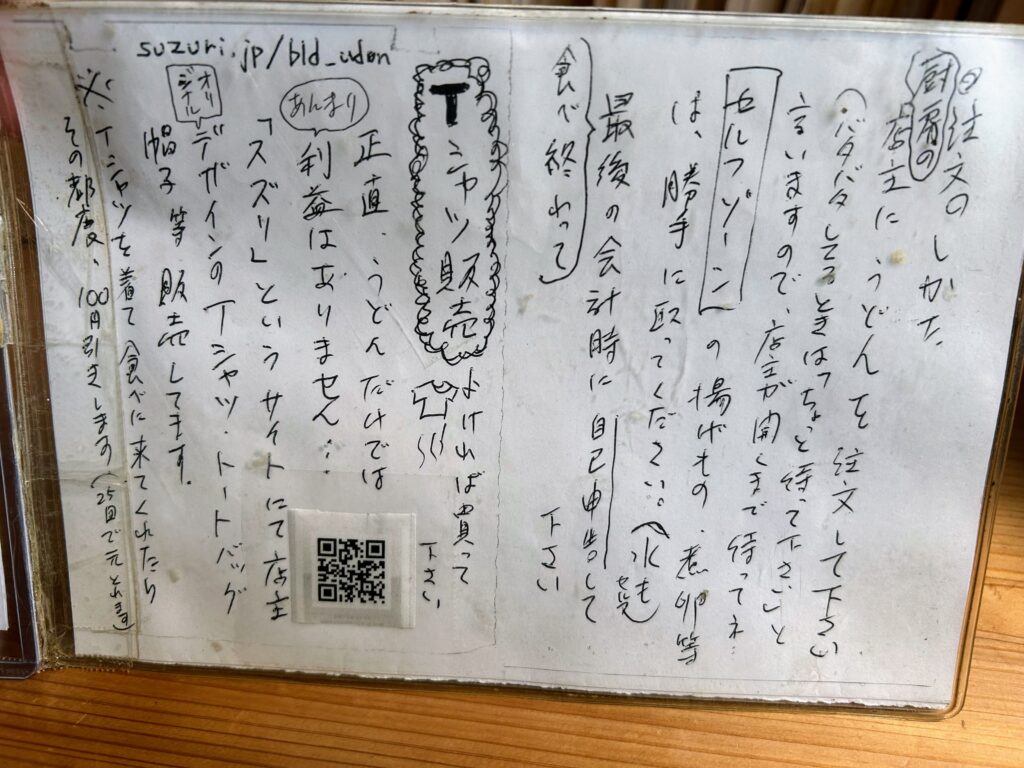 ◎注文のしかた
厨房の店主に、うどんを注文して下さい
(バタバタしてるときは「ちょっと待って下さい」と
言いますので、店主が開くまで待ってネ
セルフゾーンの揚げもの、煮卵等
は、勝手に取ってください。(水もセルフ)
最後の会計時に自己申告して
下さい
(食べ終わって)
Tシャツ販売
よければ買って
下さい
正直、うどんだけでは
あんまり
利益はありません…
「スズリ」というサイトにて店主
オリジナル
デザインのTシャツ・トートバッグ
帽子等販売してます。
suzuri.jp/bld_udon
※Tシャツを着て食べに来てくれたら
その都度、100円引きします(25回で元とれます)